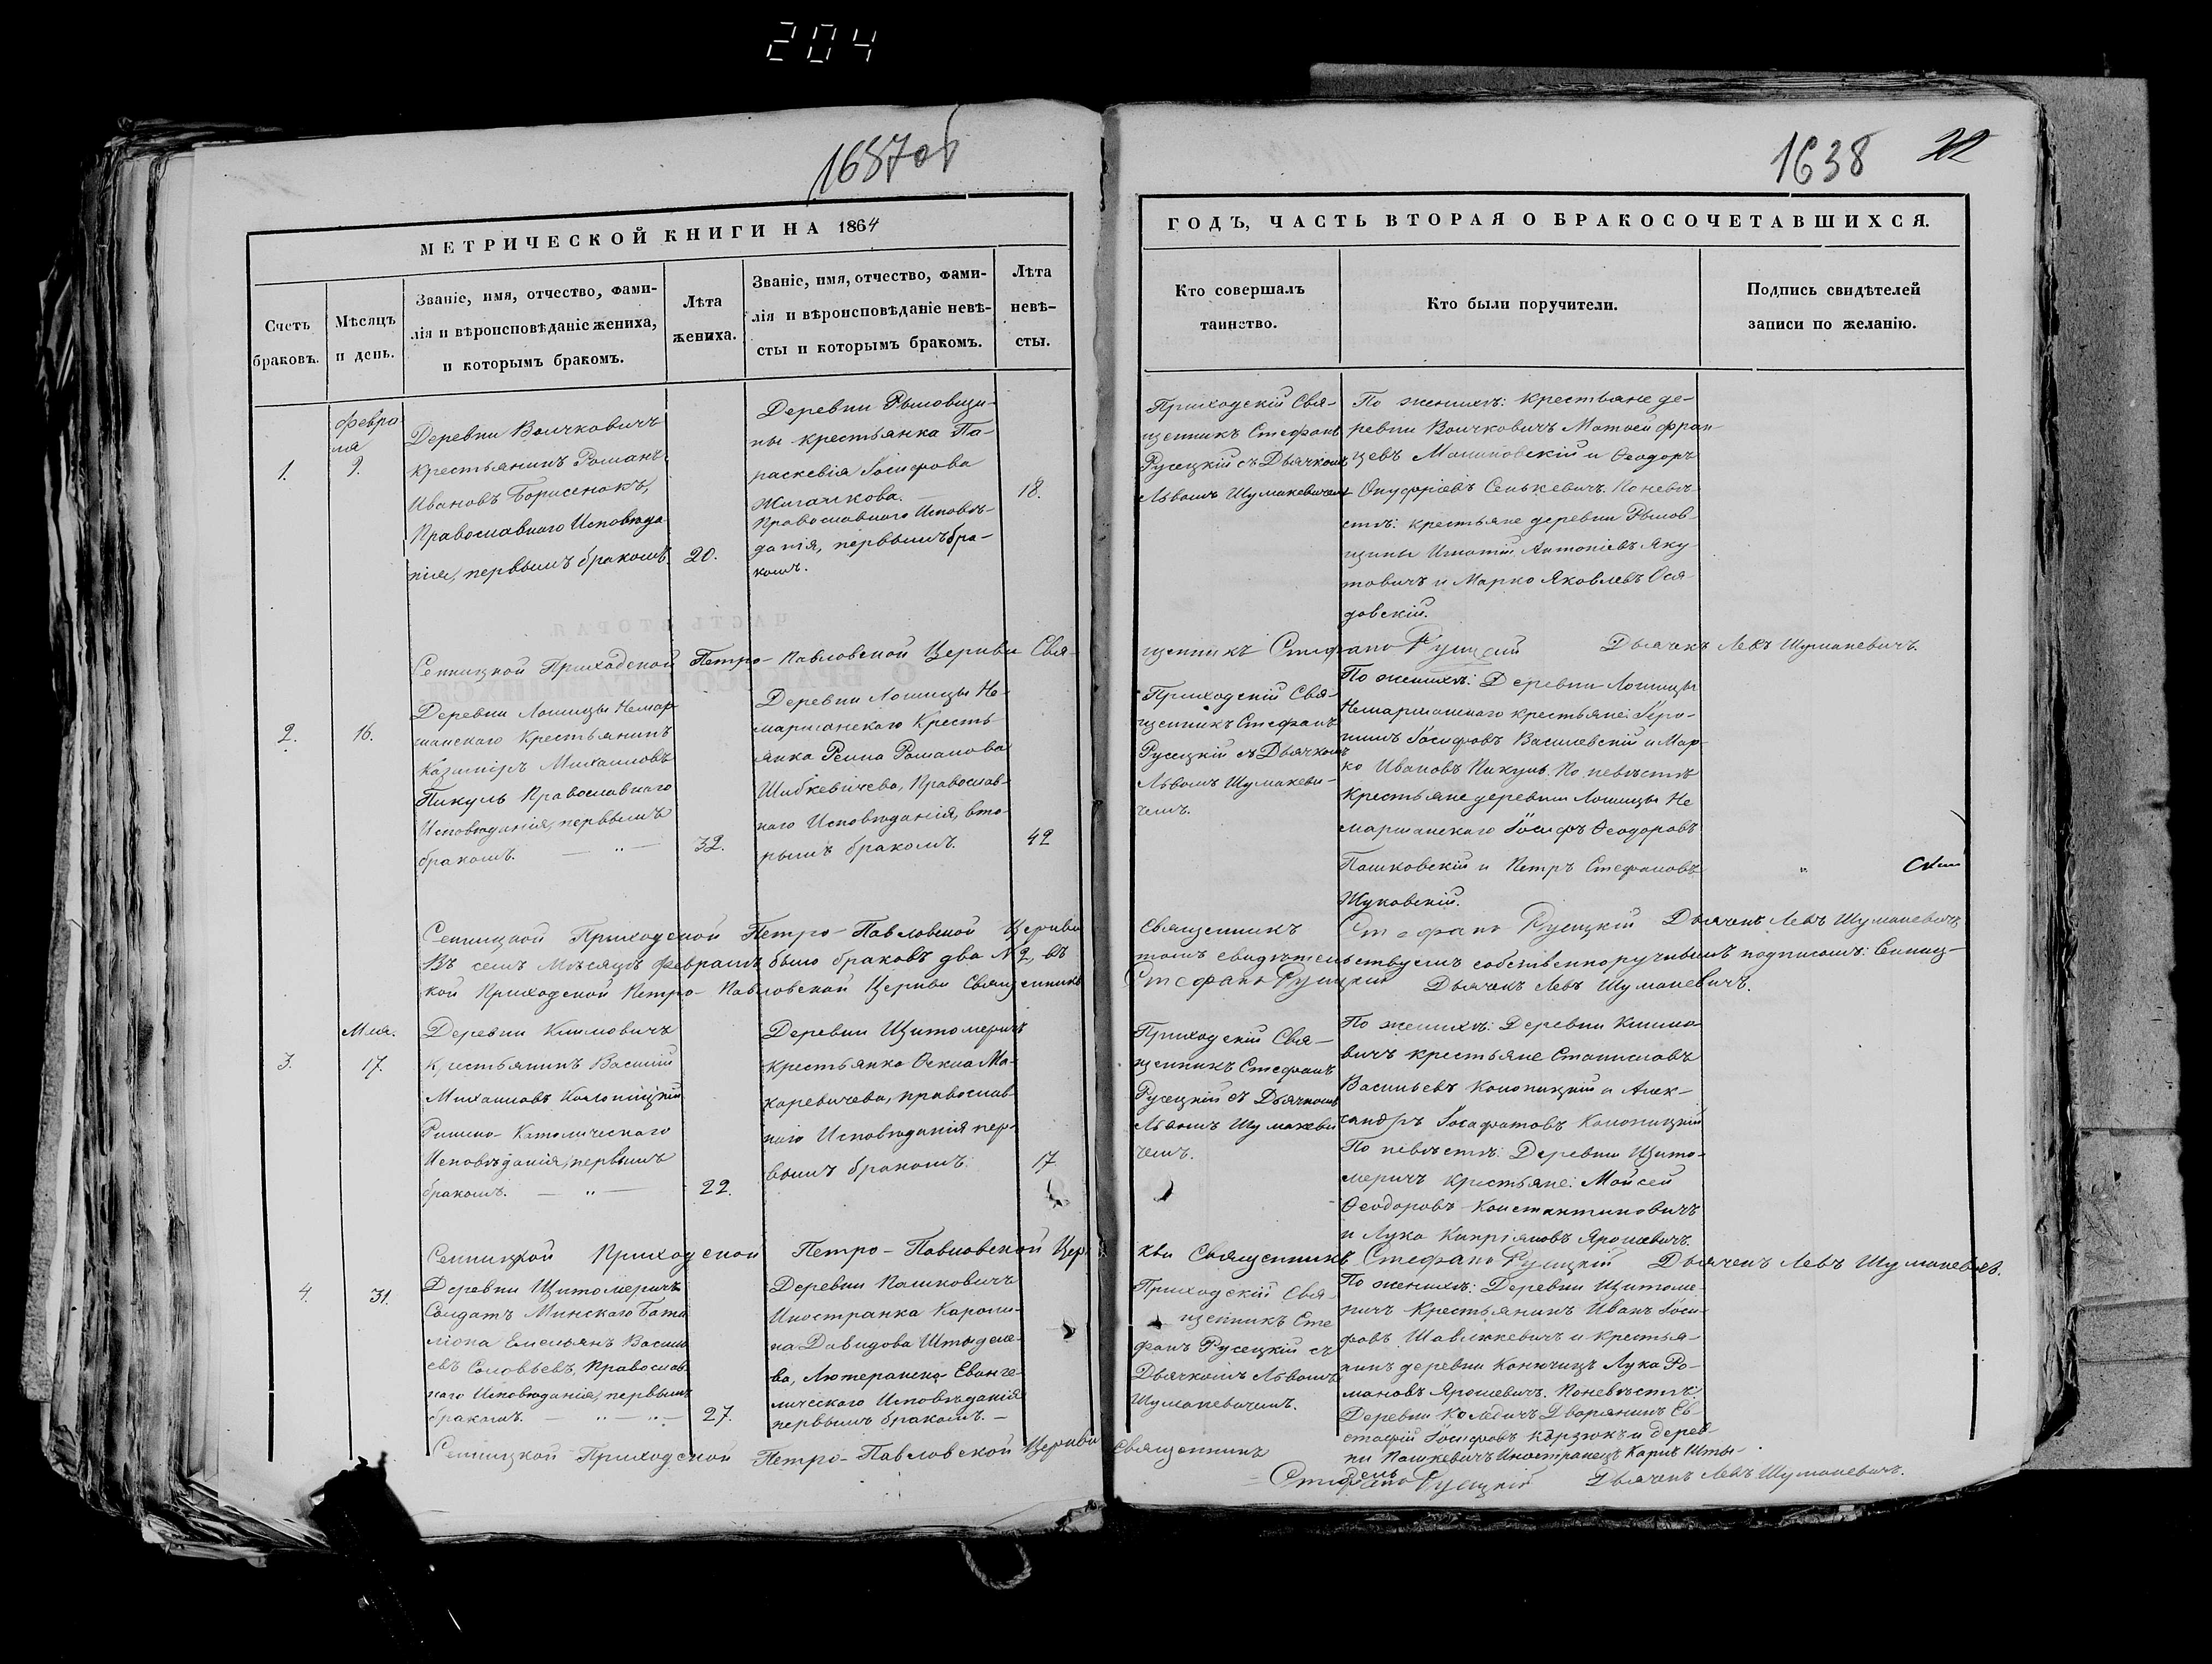 204
1637об
1638 22
МЕТРИЧЕСКОЙ КНИГИ НА 1864
ГОДЪ, ЧАСТЬ ВТОРАЯ О БРАКОСОЧЕТАВШИХСЯ.
Счетъ
браковъ.
Мѣсяцъ
и день.
Званіе, имя, отчество, фами-
лія и вѣроисповѣданіе жениха,
и которымъ бракомъ.
Лѣта
жениха.
Званіе, имя, отчество, фами-
лія и вѣроисповѣданіе невѣ-
сты и которымъ бракомъ.
Лѣта
невѣ-
сты.
Кто совершалъ
таинство.
Кто были поручители.
Подпись свидѣтелей
записи по желанію.
1.
Февра
ля
9.
Деревни Воичковичъ
крестьянинъ Романъ
Ивановъ Борисенокъ,
Православнаго Исповѣда
нія, первымъ бракомъ
20.
Деревни Рымовщи-
ны крестьянка Па-
раскевія Іосифова
Жигалкова.
Православнаго Исповѣ-
данія, первымъ бра-
комъ.
18.
Приходскій Свя-
щенникъ Стефанъ
Русецкій съ Дьячкомъ
Львомъ Шуманевичемъ
По женихѣ: крестьяне де-
ревни Воичковичъ Матѳей Фран
цевъ Малиновскій и Ѳеодоръ
Онуфріевъ Сенькевичъ. По невѣ-
стѣ: крестьяне деревни Рымов-
щины Игнатій Антоніевъ Яку-
товичъ и Марко Яковлевъ Ося
довскій.
Сеницкой Приходской Петро-Павловской Церкви Свя-
щенникъ Стефанъ Русецкій Дьячекъ Левъ Шуманевичъ.
2.
16.
Деревни Лошицы Немар
шанскаго Крестьянинъ
Казиміръ Михаиловъ
Пикуль Православнаго
Исповѣданія, первымъ
бракомъ. — " —
32.
Деревни Лошицы Не-
маршанскаго Кресть
янка Романова
Шибкевичева, Православ-
наго Исповѣданія, вто-
рымъ бракомъ.
42
Приходскій Свя-
щенникъ Стефанъ
Русецкій съ Дьячкомъ
Львомъ Шуманеви-
чемъ.
По женихѣ: Деревни Лошицы
Немаршанскаго крестьяне: Іеро-
нимъ Іосифовъ Василевскій и Мар-
ко Ивановъ Пикуль. По невѣстѣ
Крестьяне деревни Лошицы Не
маршанскаго Іосифъ Ѳеодоровъ
Пашковскій и Петръ Стефановъ
Жуковскій.
Сеницкой Приходской Петро-Павловской Церкви
Священникъ Стефанъ Русецкій Дьячекъ Левъ Шуманевичъ
Въ семъ Мѣсяцѣ Февралѣ было браковъ два №2, въ
томъ свидѣтельствуемъ собственноручнымъ подписомъ: Сениц-
кой Приходской Петро-Павловской Церкви Священникъ
Стефанъ Русецкій Дьячекъ Левъ Шуманевичъ.
3.
Мая.
17.
Деревни Климовичъ
Крестьянинъ Василій
Михаиловъ Колоницкій
Римско-Католическаго
Исповѣданія, первымъ
бракомъ. — " —
22.
Деревни Щитомеричъ
Крестьянка Ма-
каревичева, православ-
наго Исповѣданія пер-
вымъ бракомъ.
17
Приходскій Свя-
щенникъ Стефанъ
Русецкій съ Дьячкомъ
Львомъ Шуманеви
чемъ.
По женихѣ: Деревни Климо
вичъ крестьяне Станиславъ
Васильевъ Колоницкій и Алек-
сандръ Іосафатовъ Колоницкій
По невѣстѣ: Деревни Щито-
меричъ Крестьяне: Моисей
Ѳеодоровъ Константиновичъ
и Лука Кипріановъ Ярошевичъ.
Сеницкой Приходской Петро-Павловской Цер-
кви Священникъ Стефанъ Русецкій Дьячекъ Левъ Шуманевичъ.
4.
31.
Деревни Щитомеричъ
Солдатъ Минскаго Бата
ліона Емельянъ Василь
евъ Соловьевъ, Православ
наго Исповѣданія, первымъ
бракомъ. — " — " —
27.
Деревни Пашковичъ
Иностранка Кароли-
на Давидова Штыделе-
ва, Лютеранско-Еванге-
лическаго Исповѣданія
первымъ бракомъ. —
Приходскій Свя-
щенникъ Сте
фанъ Русецкій съ
Дьячкомъ Львомъ
Шуманевичемъ.
По женихѣ: Деревни Щитоме-
ричъ Крестьянинъ Иванъ Іоси-
фовъ Шавлюкевичъ и крестья-
нинъ деревни Конючицъ Лука Ро-
мановъ Ярошевичъ. По невѣстѣ:
Деревни Колядичъ Дворянинъ Ев-
стафій Іосифовъ Корзюкъ и дерев-
ни Пашкевичъ Иностранецъ Карлъ Шты-
дель
Сеницкой Приходской Петро-Павловской Церкви Священникъ
Стефанъ Русецкій Дьячекъ Левъ Шуманевичъ.